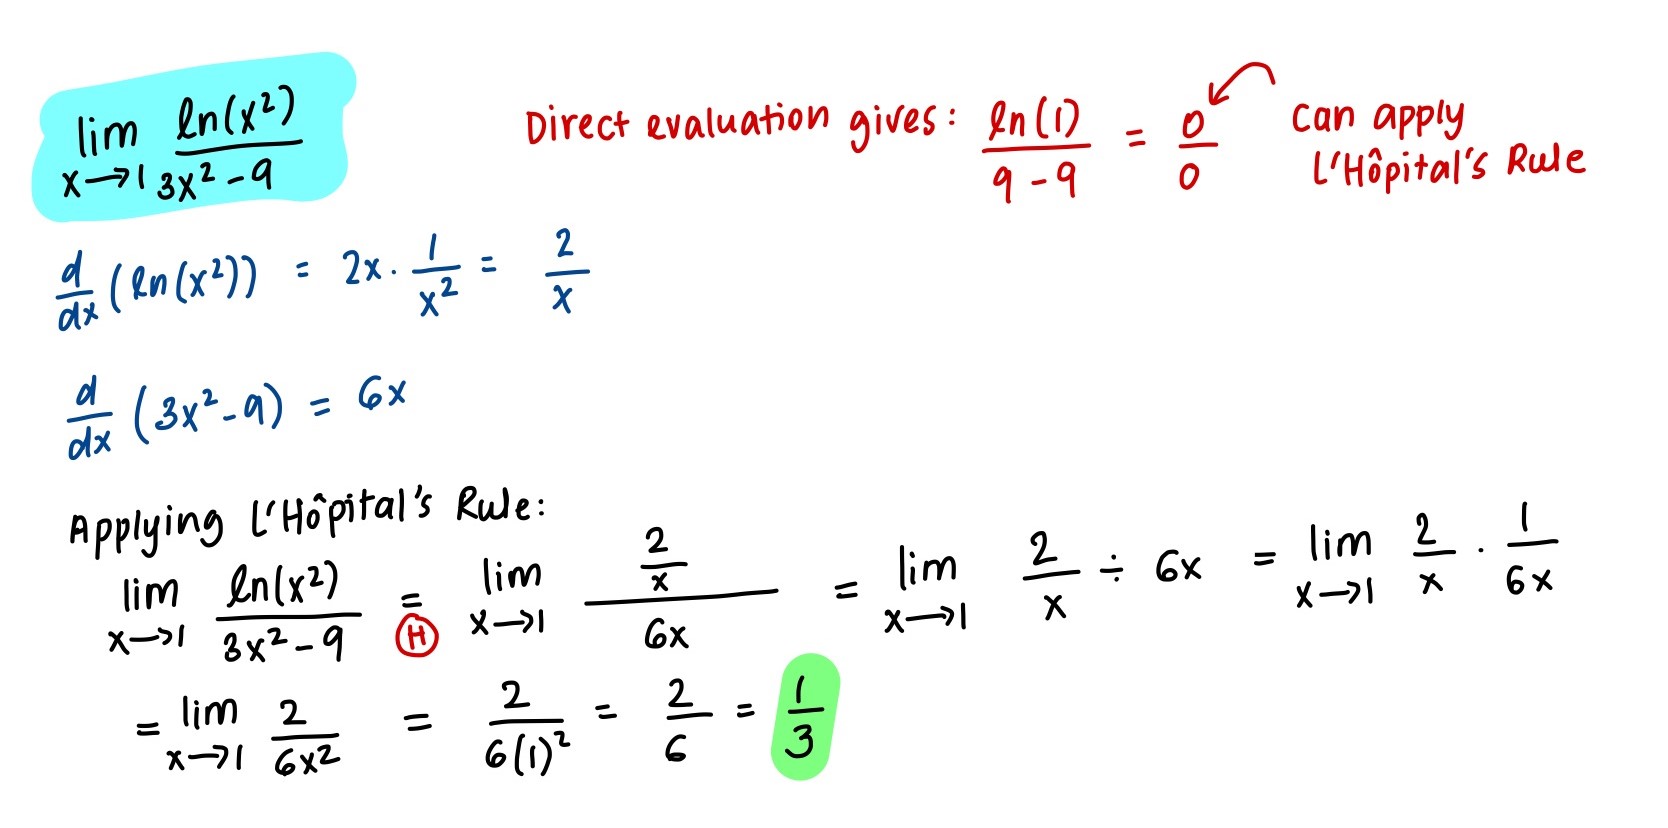 lim x→1 ln(x²)/(3x²-9)
Direct evaluation gives: ln(1)/(9-9) = 0/0 can apply L'Hôpital's Rule
d/dx (ln(x²)) = 2x · 1/x² = 2/x
d/dx (3x²-9) = 6x
Applying L'Hôpital's Rule:
lim x→1 ln(x²)/(3x²-9) = Ⓗ lim x→1 (2/x)/(6x) = lim x→1 2/x ÷ 6x = lim x→1 2/x · 1/(6x)
= lim x→1 2/(6x²) = 2/(6(1)²) = 2/6 = 1/3